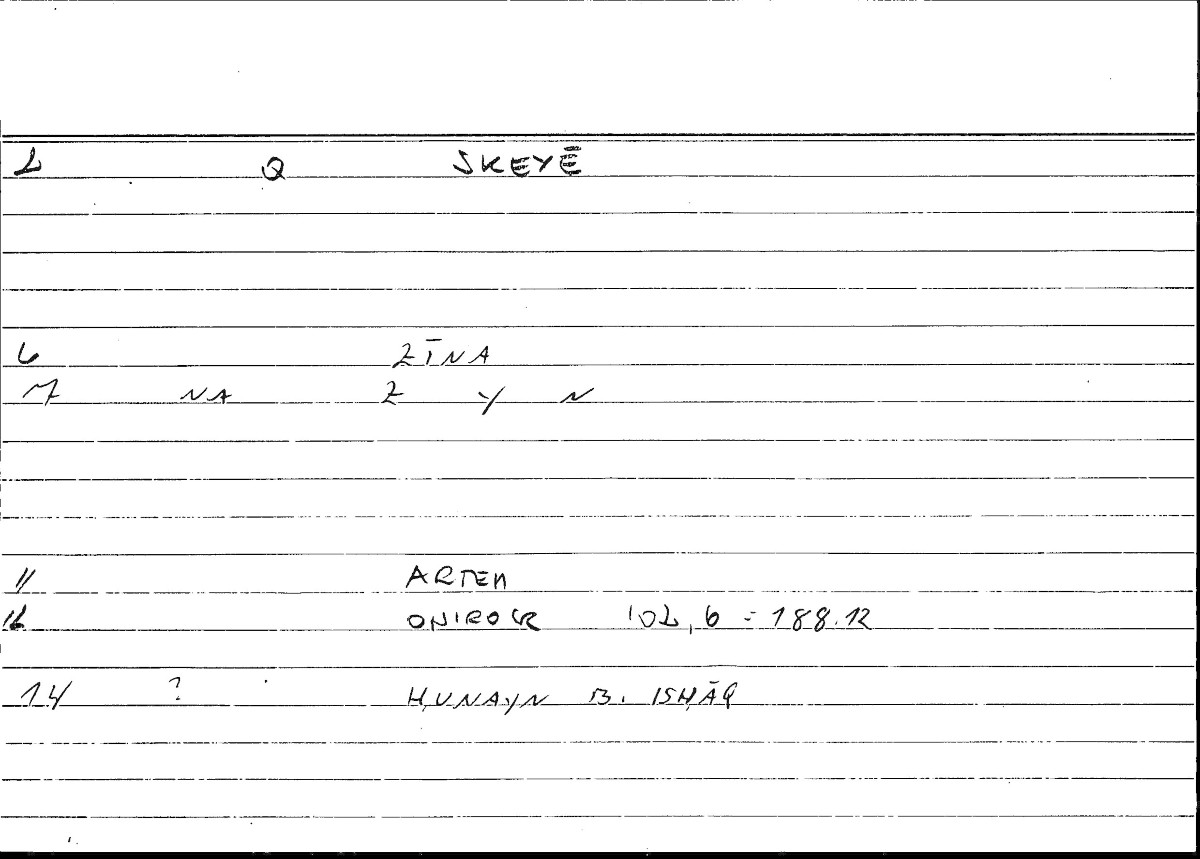 2 Q SKEYĒ
6 ZĪNA
7 NA Z Y N
11 ARTEM
12 ONIROCR 102,6 = 188.12
14 ? ḤUNAYN B. ISḤĀQ